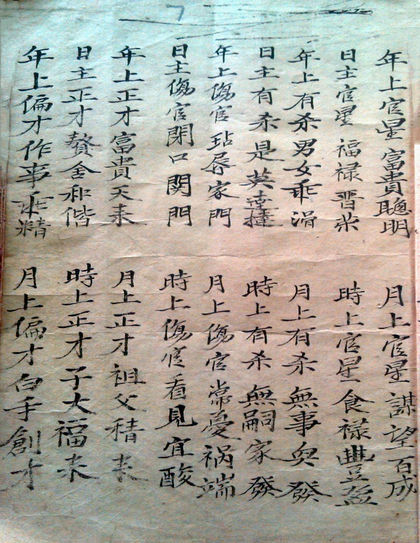 年上官星富貴聰明 月上官星謀望百成
日主官星福禄晋米 時上官星食禄豐盈
年上有杀男女乖滑 月上有杀無事與發
日主有杀是英達 時上有杀無嗣家發
年上傷官玷辱家門 月上傷官常憂禍端
日主傷官閉口関門 時上傷官看見宜酸
年上正才富貴天来 月上正才祖父積来
日主正才贅舍和偕 時上正才子大福来
年上偏才作事乖精 月上偏才白手創才